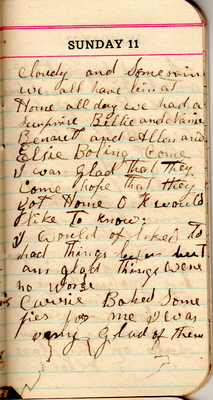 SUNDAY 11
Cloudy and Some rain
we all have bin at
Home all day we had a
Surprise Billie and
Benarett and Allen and
Elsie Boling Come
I was glad that they
Come I hope that they
got Home O K would
like to know:
I would of liked to
had things but
am glad things were
no worse
Carrie Baked Some
pies for me I was
very glad of them